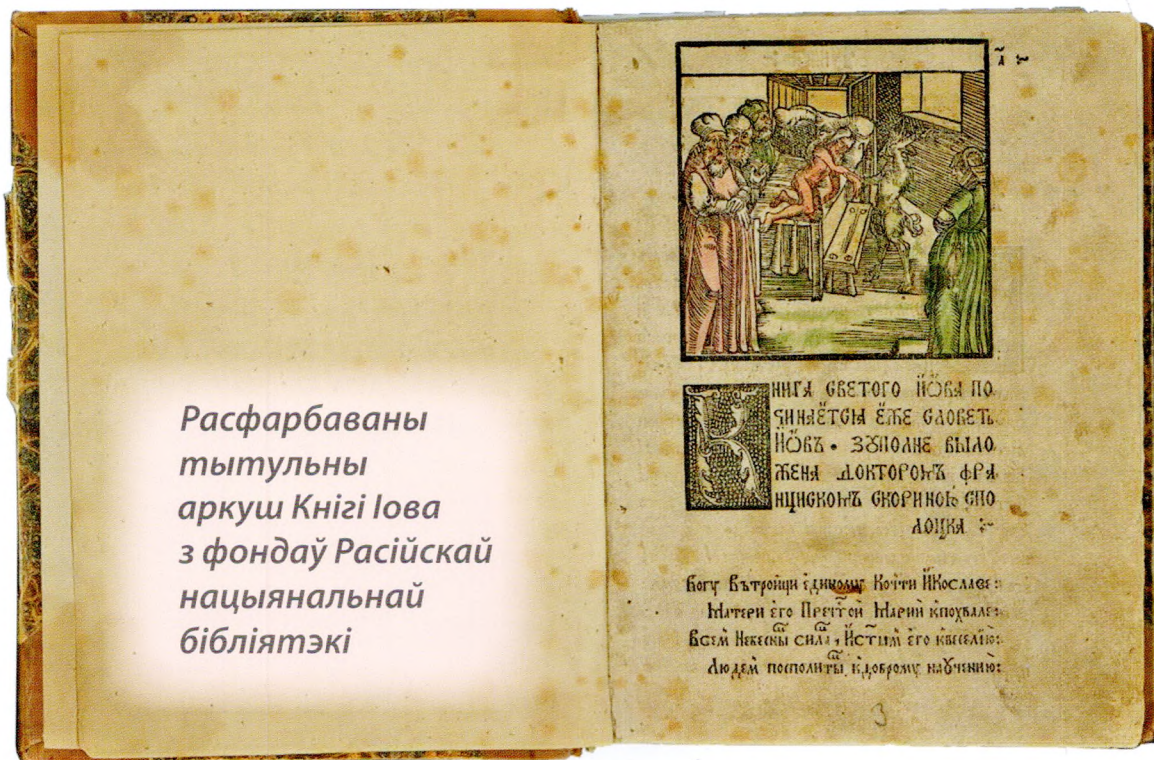 Расфарбаваны
тытульны
аркуш Кнігі Іова
з фондаў Расійскай
нацыянальнай
бібліятэкі
КНИГА СВЕТОГО ИѠВА ПО
ЧИНАЕТСЯ ЕЖЕ СЛОВЕТЬ
ИѠВЪ • ЗУПОЛНЕ ВЫЛО
ЖЕНА ДОКТОРОМЪ ФРА
НЦИСКОМЪ СКОРИНОЮ СПО
ЛОЦКА
Богу Вътройци единому Кочти Икославе:
Матери его Пречтой Марии кпохвале:
Всем Небескы сила, Истым его квеселию:
Людем посполиты, кдоброму научению:
3